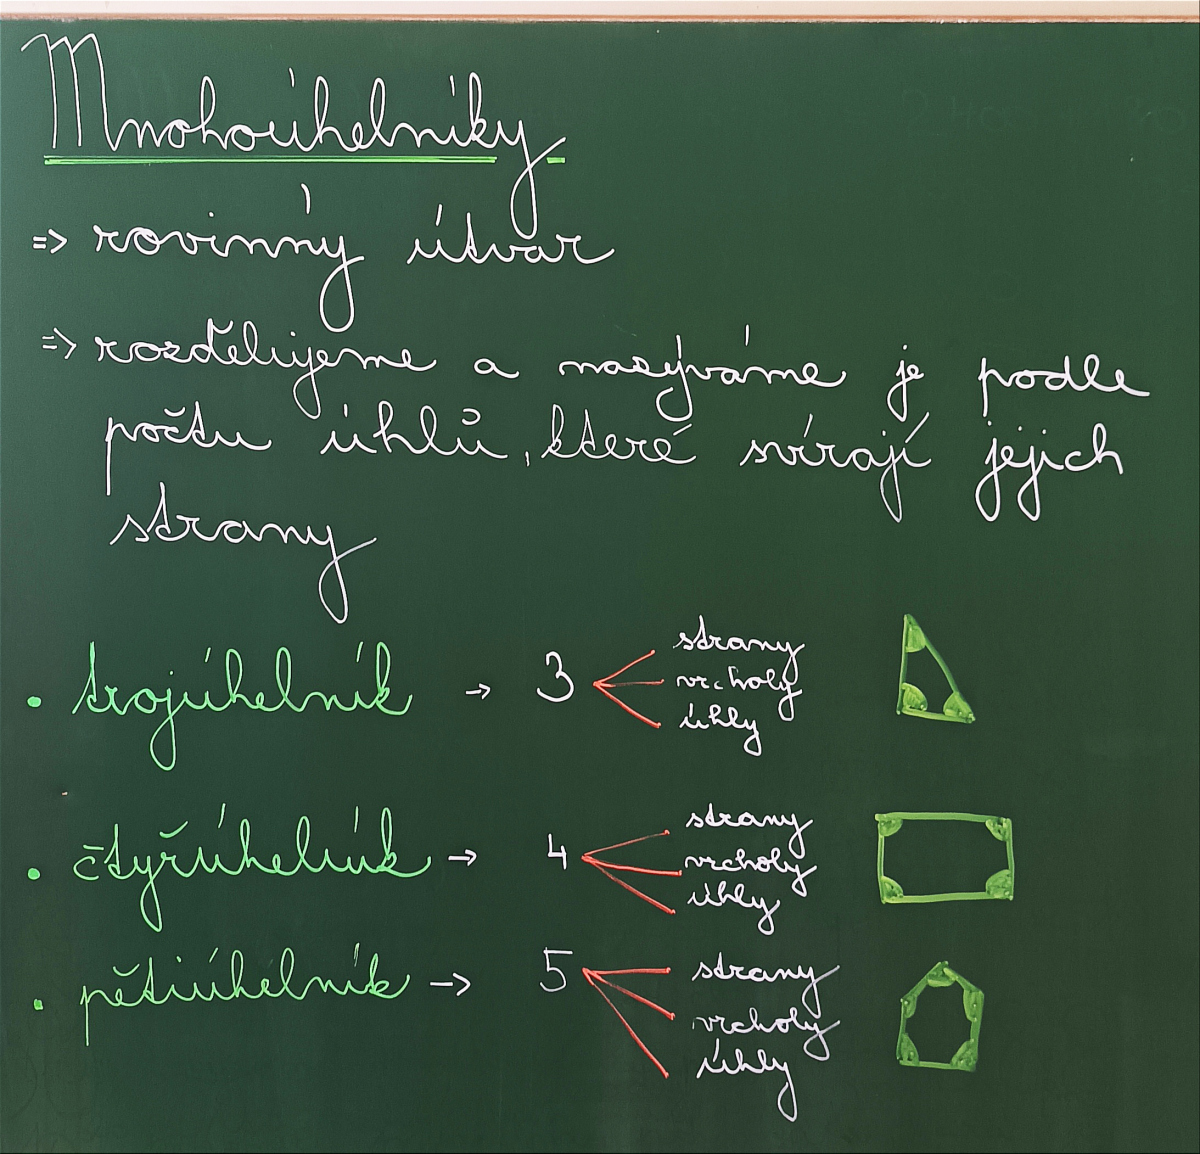 Mnohoúhelníky
=> rovinný útvar
=> rozdělujeme a nazýváme je podle
počtu úhlů, které svírají jejich
strany
• trojúhelník -> 3 strany
vrcholy
úhly
• čtyřúhelník -> 4 strany
vrcholy
úhly
• pětiúhelník -> 5 strany
vrcholy
úhly